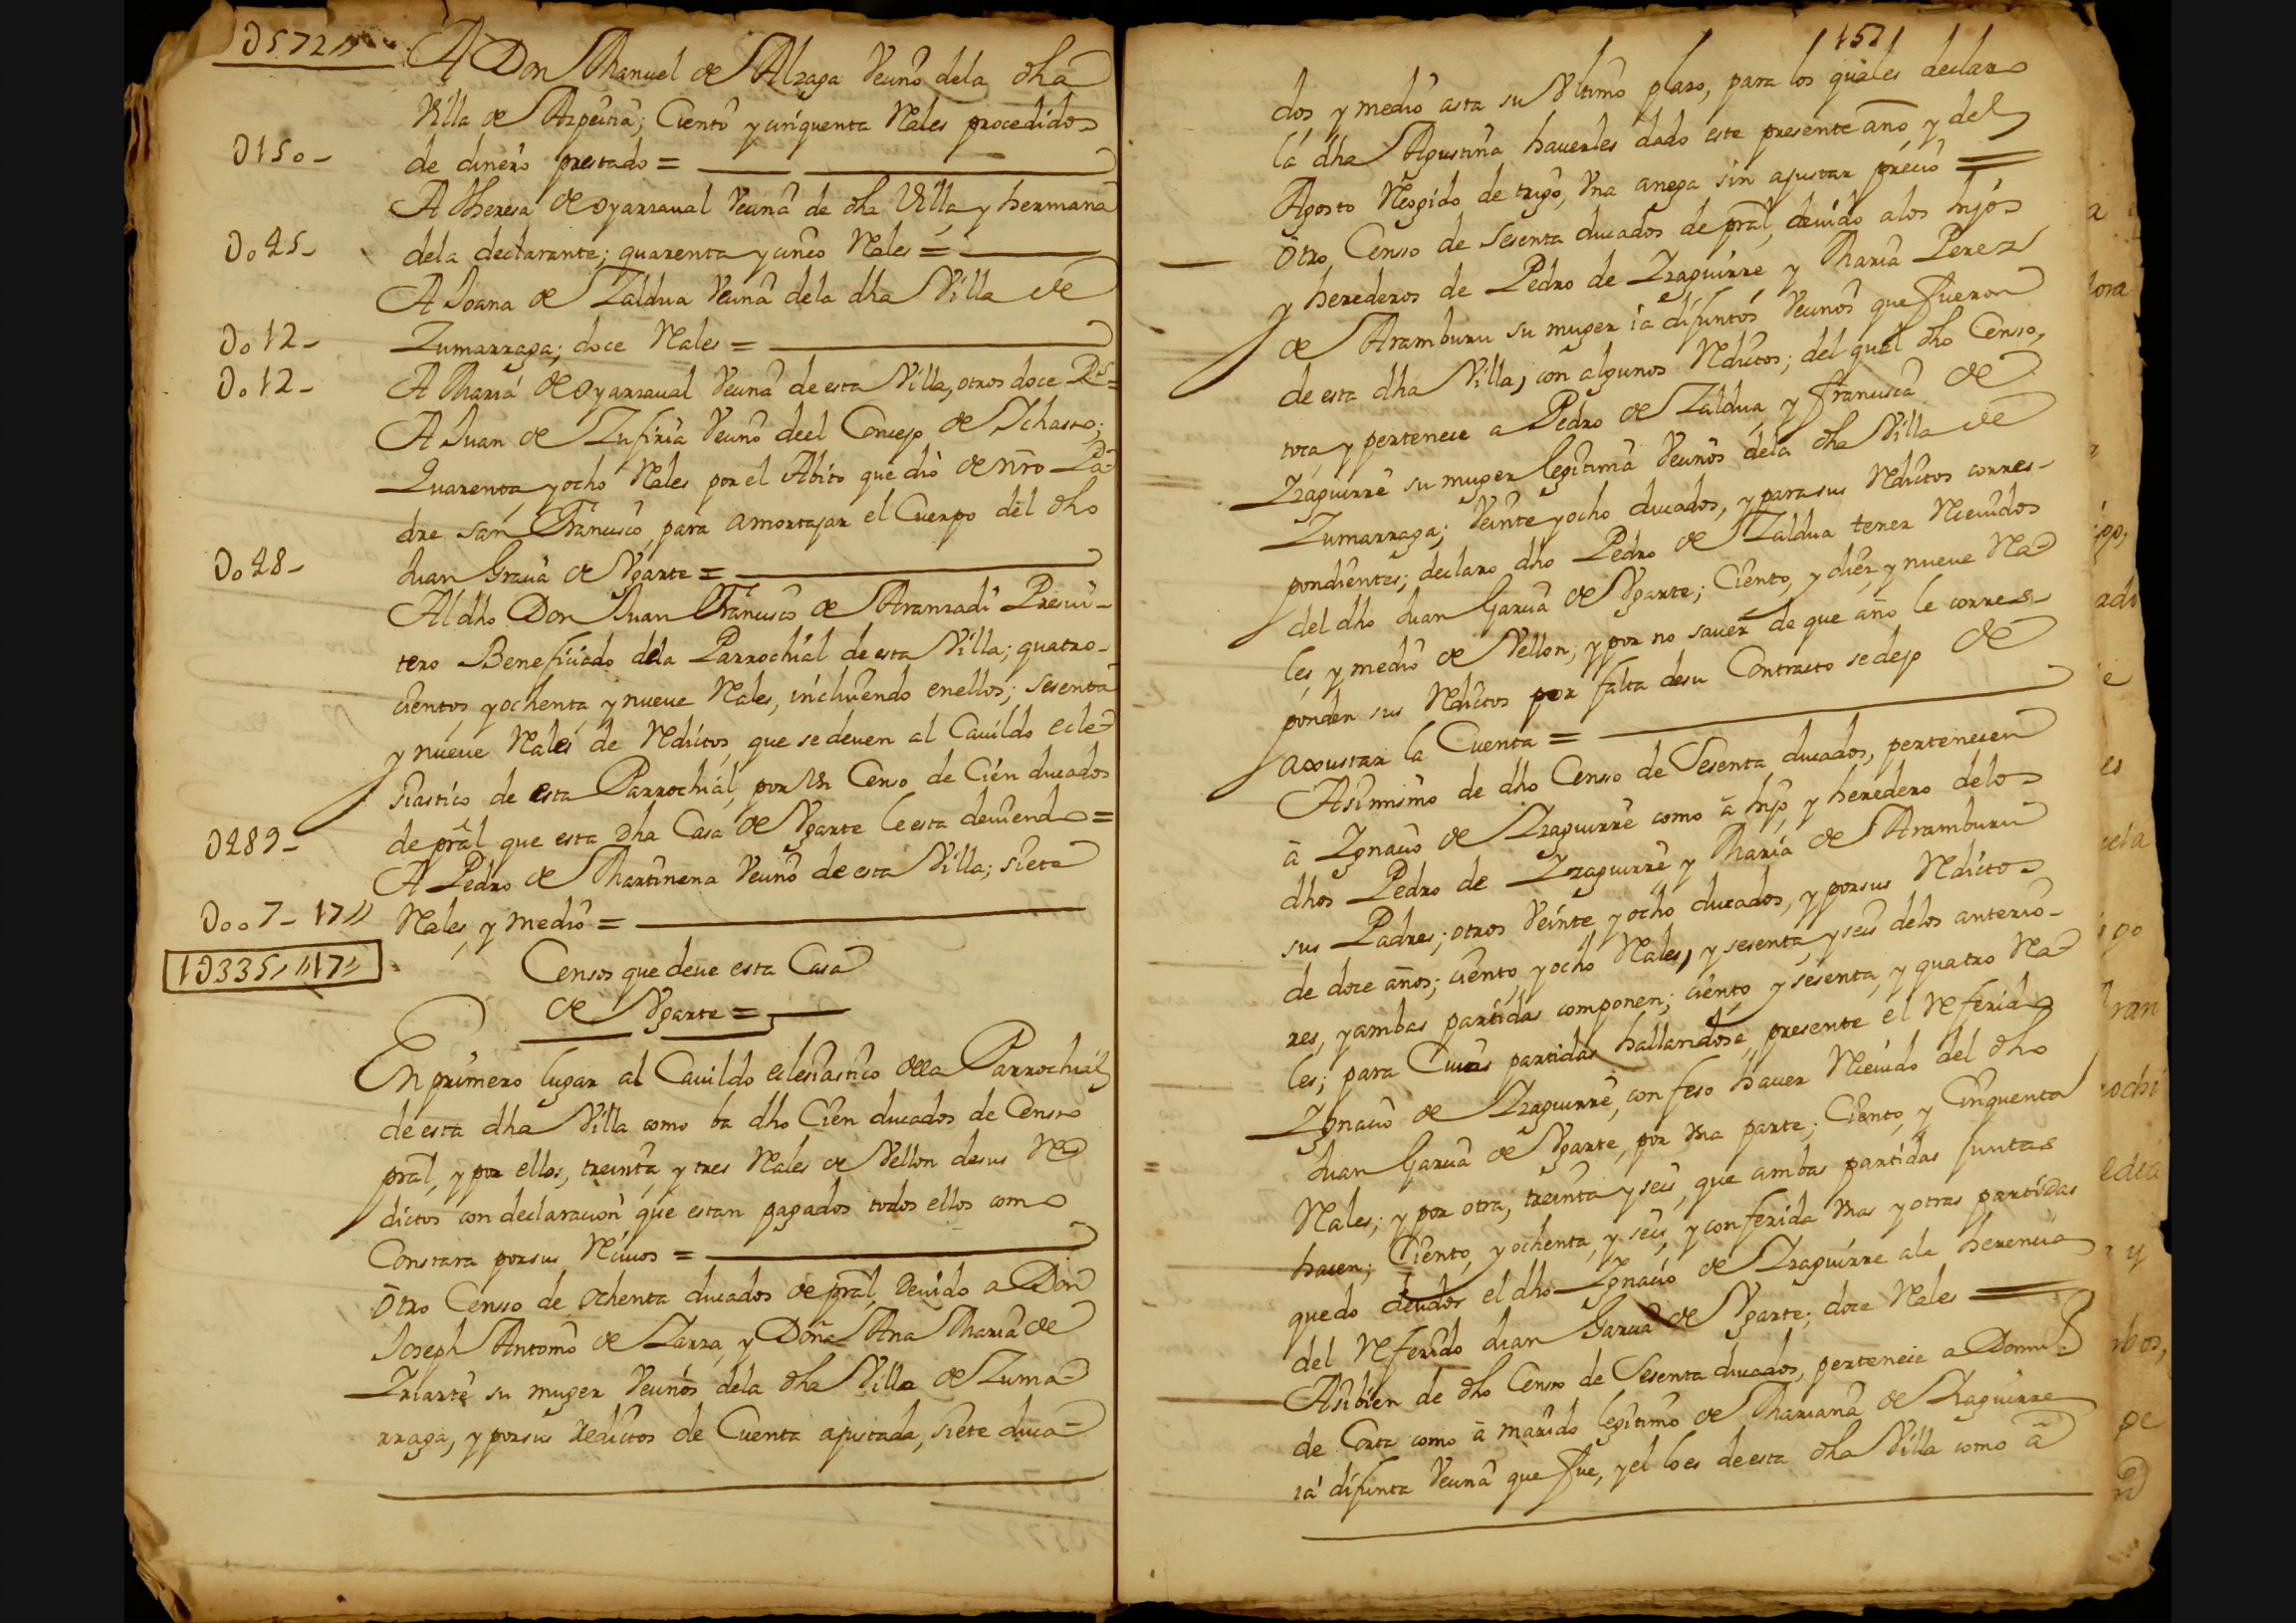 D572//
A Don Manuel de Alzaga Vecino dela dha
Villa de Azpeitia; Ciento y cinquenta Rales procedidos
D150- de dinero prestado =
A Theresa de oyarzaual Vecina de dha Villa, y hermana
Do45- dela declarante; quarenta y cinco Rales =
A Joana de Zaldua Vecina dela dha Villa de
Do12- Zumarraga; doce Rales =
Do12- A Maria de oyarzaual Vecina de esta Villa, otros doce Rs=
A Juan de Zufiria Vecino deel Concejo de Ichasso;
Quarenta, y ocho Rales por el Abito que dio de nro Pa-
dre san Francisco, para amortajar el Cuerpo del dho
Do48- Juan Gracia de Vgarte =
Al dho Don Juan Francisco de Aranzadi Presui-
tero Beneficiado dela Parrochial de esta Villa; quatro-
cientos, y ochenta, y nueue Rales, incluiendo enellos; sesenta
y nueue Rales de Rditos, que se deuen al Cauildo ecle-
siastico de esta Parrochial, por Vn Censo de Cien ducados
D489- de pral que esta dha Casa de Vgarte le esta deuiendo =
A Pedro de Martinena Vecino de esta Villa; siete
Doo7-17// Rales, y medio =
1D335//17//
Censos que deue esta Casa
de Vgarte =
En primero lugar al Cauildo eclesiastico dela Parrochial
de esta dha Villa como ba dho Cien ducados de Censo
pral, y por ellos, treinta, y tres Rales de Vellon desus Re-
dictos con declaracion que estan pagados todos ellos como
Constara porsus Reciuos =
otro Censso de ochenta ducados de pral, deuido a Don
Joseph Antonio de Zarra, y Doña Ana Maria de
Yriarte su muger Vecinos dela dha Villa de Zuma-
rraga, y porsus redictos de Cuenta ajustada, siete duca-
151
dos y medio asta su Vltimo plazo, para los quales declaro
la dha Agustina hauerles dado este presente año, y del
Agosto Recogido de trigo, Vna anega sin ajustar precio =
otro Censso de Sesenta ducados de pral, deuido alos hijos
y herederos de Pedro de Yzaguirre y Maria Perez
de Aramburu su muger ia difuntos Vecinos que fueron
de esta dha Villa, con algunos Rditos; del qual dho Censo,
toca, y pertenece a Pedro de Zaldua, y francisca de
Yzaguirre su muger legitima Vecinos dela dha Villa de
Zumarraga; Veinte y ocho ducados, y para sus Rditos corres-
pondientes; declaro dho Pedro de Zaldua tener Reciuidos
del dho Juan Garcia de Vgarte; Ciento, y diez, y nueue Ra-
les, y medio de Vellon; y por no sauer de que año le corres-
ponden sus Rditos por falta desu Contracto se dejo de
axustar la Cuenta =
Asimismo de dho Censo de Sesenta ducados, pertenecen
à Ygnacio de Yzaguirre como à hijo, y heredero delos
dhos Pedro de Yzaguirre y Maria de Aramburu
sus Padres; otros Veinte, y ocho ducados, y porsus Rditos
de doce años; ciento, y ocho Rales, y sesenta, y seis delos anterio-
res, y ambas partidas componen; ciento, y sesenta, y quatro Ra-
les; para Cuias partidas hallandose, presente el Referido
Ygnacio de Yzaguirre, confeso hauer Reciuido del dho
Juan Garcia de Vgarte, por Vna parte; Ciento, y Cinquenta
Rales; y por otra, treinta y seis, que ambas partidas juntas
hacen; Ciento, y ochenta, y seis, y conferida Vnas y otras partidas
quedo deudor el dho Ygnacio de Yzaguirre ala herencia
del Referido Juan Garcia de Vgarte; doce Rales =
Asibien de dho Censo de Sesenta ducados, pertenece a Domingo
de Corta como à marido legitimo de Mariana de Yzaguirre
ia difunta Vecina que fue, y el lo es de esta dha Villa como à